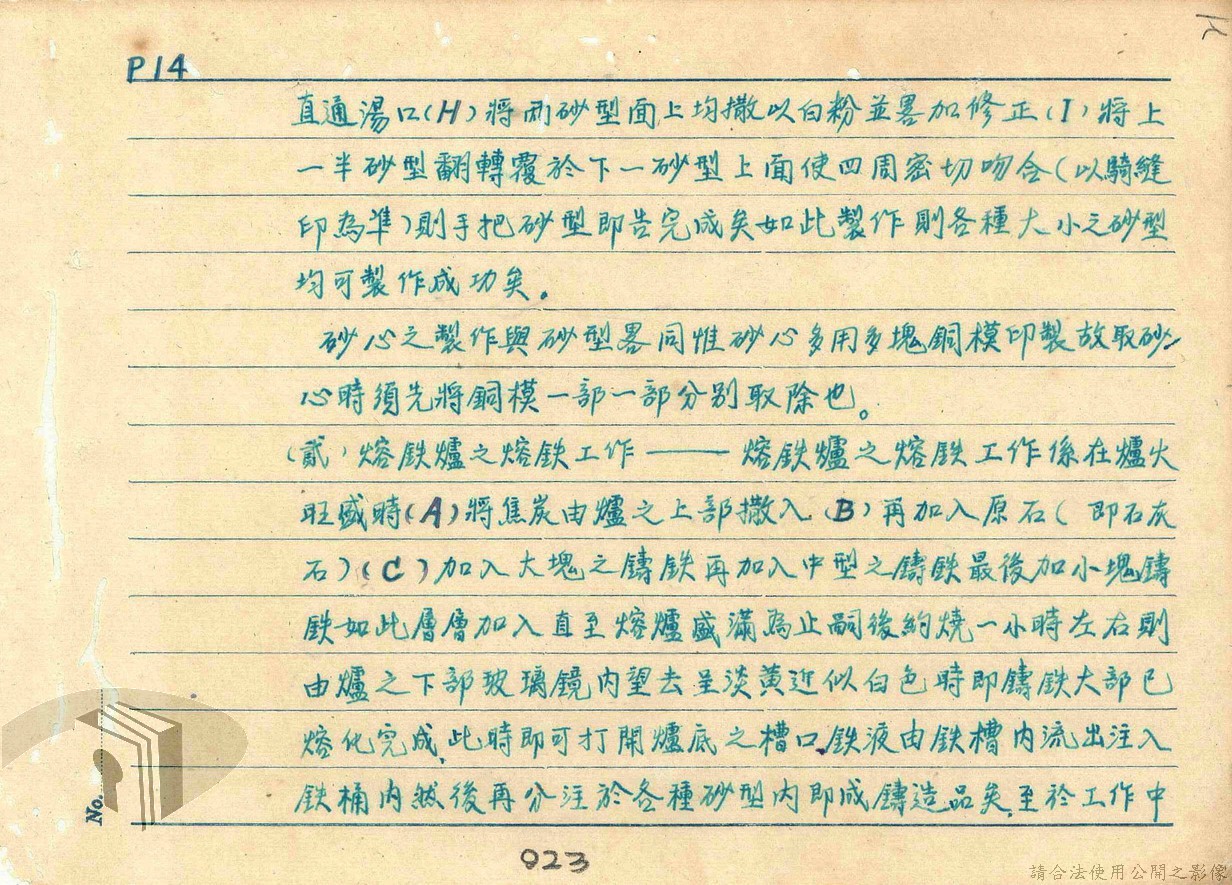 P14
直通湯口(H)將兩砂型面上均撒以白粉並畧加修正(I)將上
一半砂型翻轉覆於下一砂型上面使四周密切吻合(以騎縫
印為準)則手把砂型即告完成矣如此製作則各種大小之砂型
均可製作成功矣。
砂心之製作與砂型畧同惟砂心多用多塊銅模印製故取砂
心時須先將銅模一部一部分别取除也。
(貳)熔鉄爐之熔鉄工作——熔鉄爐之熔鉄工作係在爐火
旺盛時(A)將焦炭由爐之上部撒入(B)再加入原石(即石灰
石)(C)加入大塊之鑄鉄再加入中型之鑄鉄最後加小塊鑄
鉄如此層層加入直至熔爐盛滿為止嗣後約燒一小時左右則
由爐之下部玻璃鏡内望去呈淡黄近似白色時即鑄鉄大部已
熔化完成,此時即可打開爐底之槽口,鉄液由鉄槽内流出注入
鉄桶内然後再分注於各種砂型内即成鑄造品矣,至於工作中
No.
023
請合法使用公開之影像